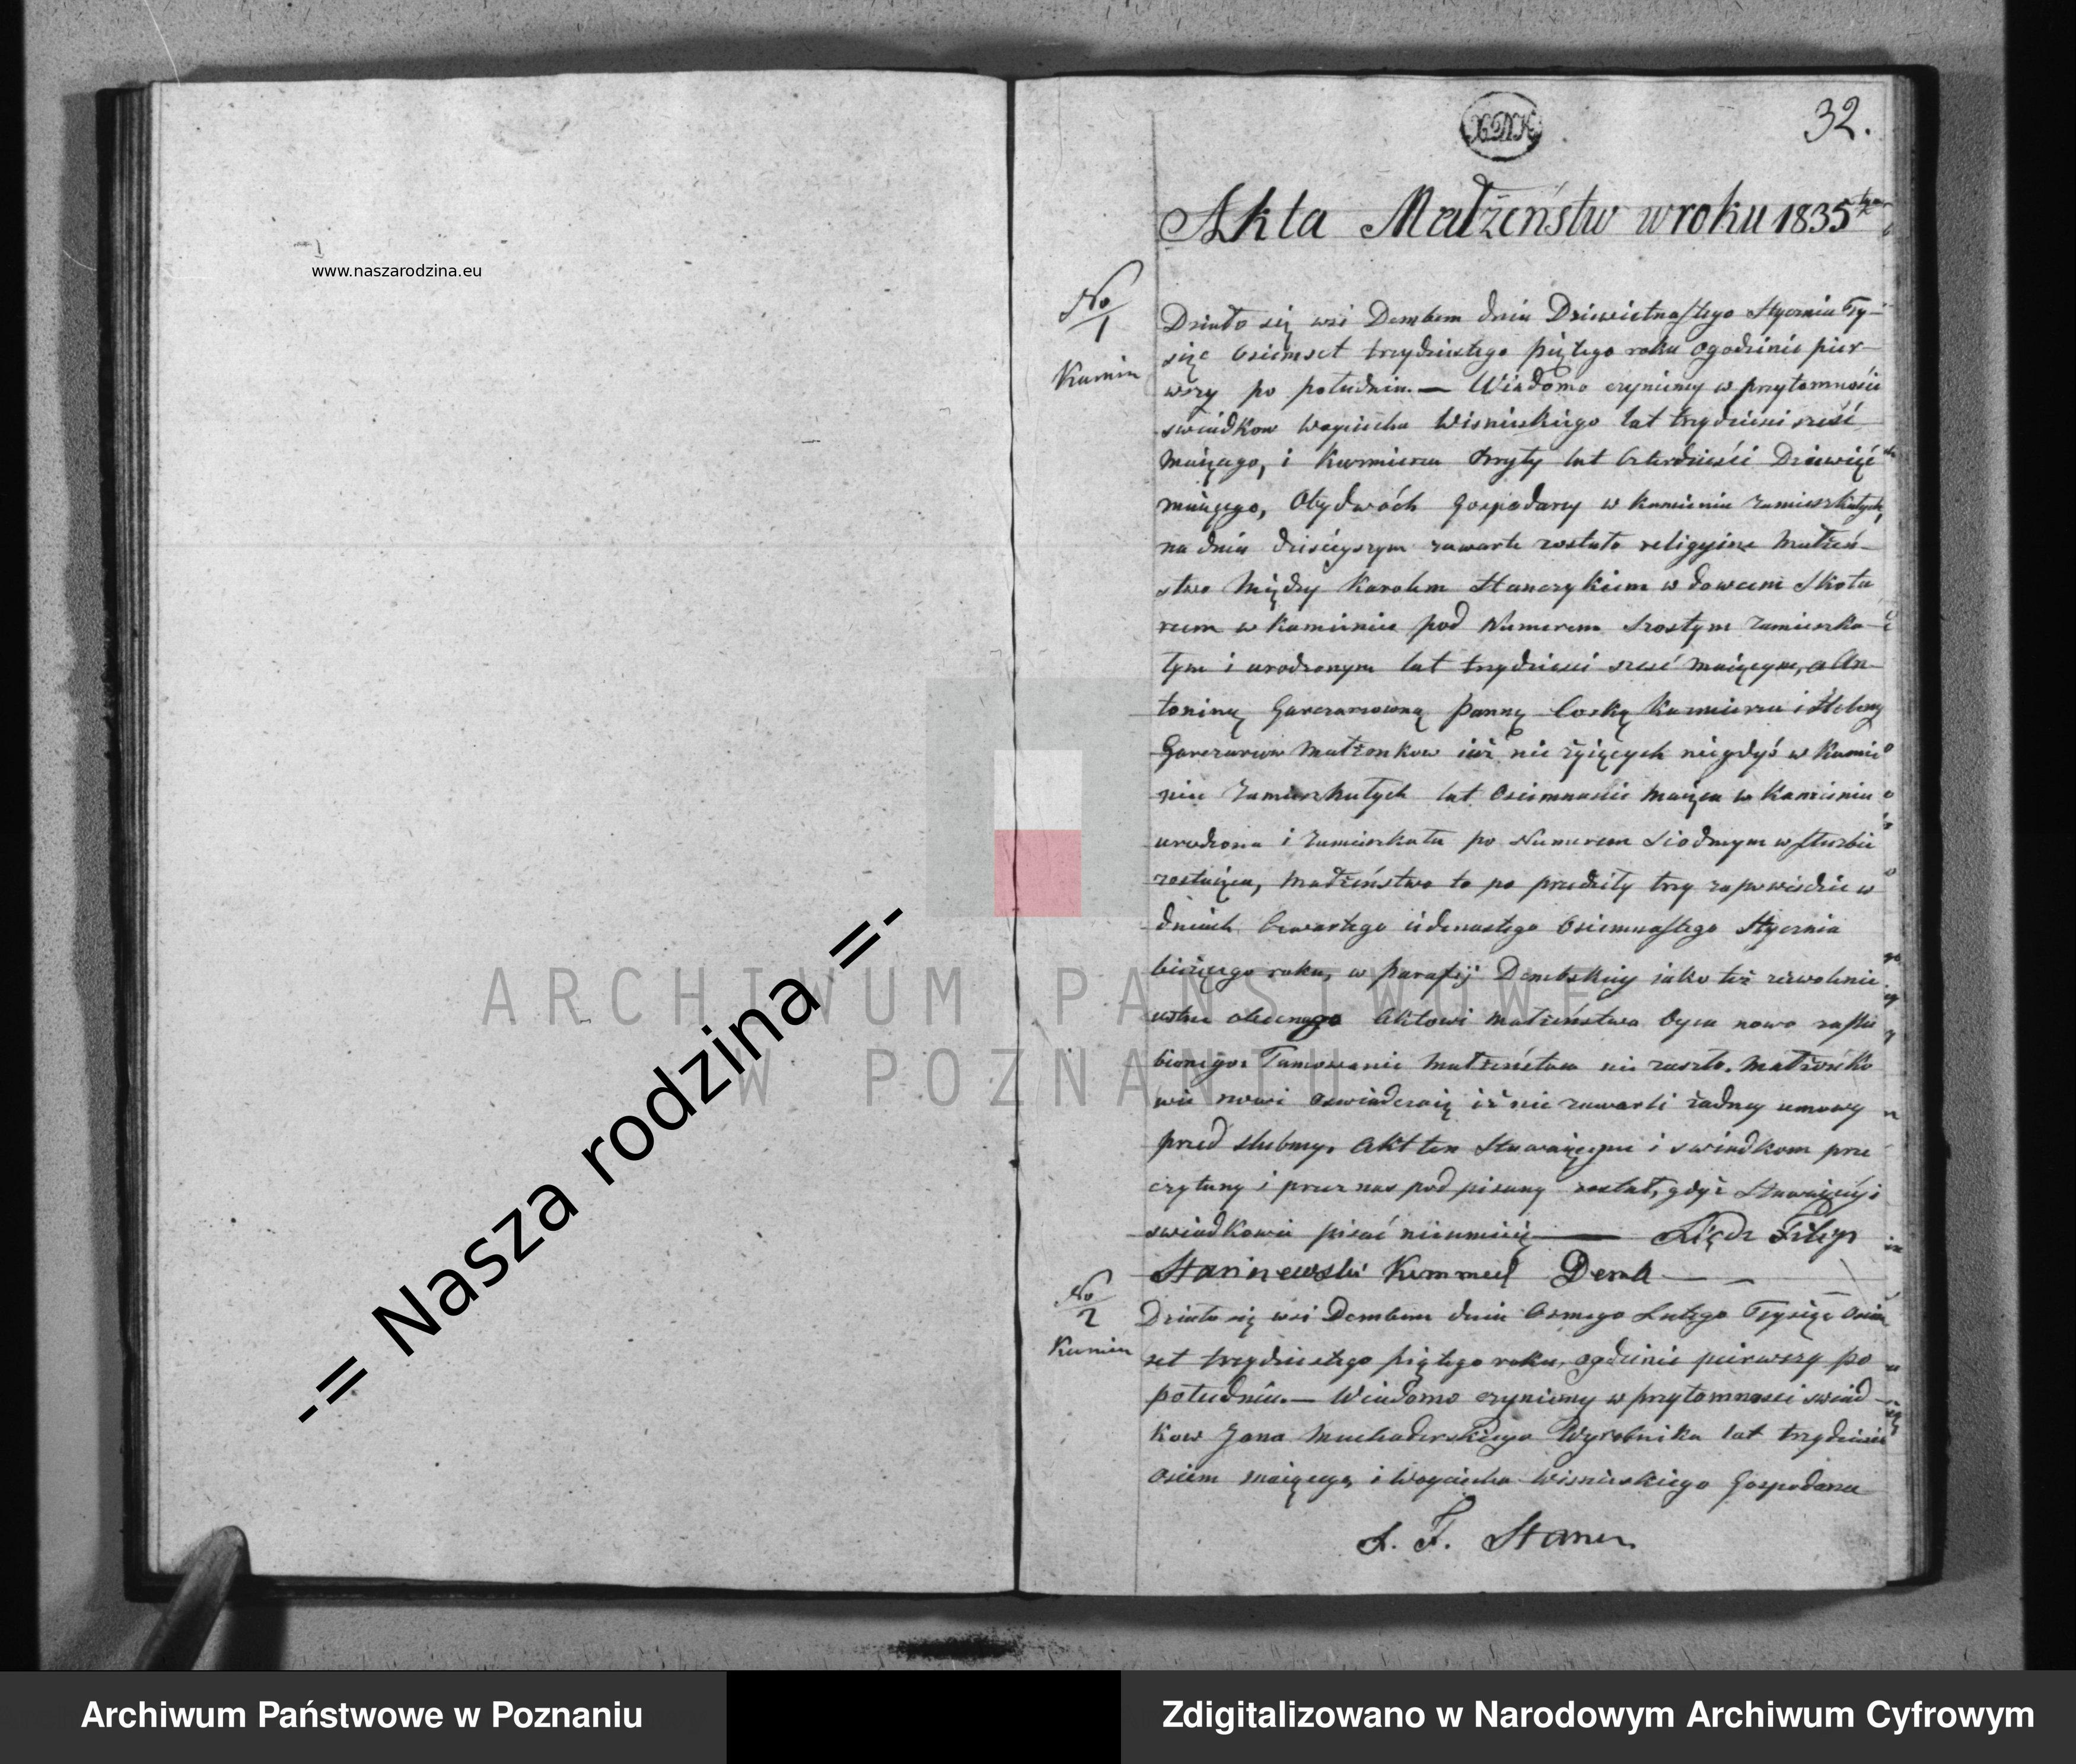 32.
Akta Małżeństw w roku 1835
www.naszarodzina.eu
No 1
Kamin
Działo się wsi Dembem dnia Dziewietnastego Stycznia Ty-
siąc Osiemset trzydziestego piątego roku ogodzinie pier-
wszy po południu. — Wiadomo czyniemy w przytomności
swiadkow Woyciecha Wisniewskiego lat trzydzieści sześć
maiącego, i Kazmierza lat Czterdzieści Dziewięć
maiącego, Obydwóch Gospodarzy w Kamieniu zamieszkałych,
na dniu dzisieyszym zawarte zostało religyine Małżeń-
stwo Między Karolem Stanczykiem wdowcem Skota
rzem w Kamieniu pod Numerem Szostym zamieszka-
łym i urodzonym lat trzydzieści sześć maiącym, a An-
toniną Garczarzowną Panną Corką Kazmierza i Heleny
Garczarzow Małżonkow iuż nie żyiących niegdyś w Kamie
niu Zamieszkałych lat Osiemnaście maiąca w Kamieniu
urodzona i zamieszkała po Numerem Siodmym w służbie
zostaiąca, Małżeństwo to po przedziły trzy zapowiedzie w
dniach Czwartego iedenastego Osiemnastego Stycznia
bieżącego roku, w parafij Dembskiey iako też zezwolenie
ustne obecnego Aktowi małżeństwa Oyca nowo zaślu
bionego. Tamowanie Małżeństwa nie zaszło. Małżonko
wie nowi oswiadczaią iż nie zawarli żadney umowy
przed slubney. Akt ten Stawaiącym i swiadkom prze
czytany i przez nas podpisany został, gdyż Stawaiący i
swiadkowie pisać nieumieią — Xiądz Filip
Stanisewski Kommend Demb — —
No 2
Kamien
Działo się wsi Dembem dnia Osmego Lutego Tysiąc Osiem
set trzydziestego piątego roku, ogodzinie pierwszy po
południu. — Wiadomo czyniemy w przytomności swiad-
kow Jana Wyrobnika lat trzydzieści
osiem maiącego, i Woyciecha Wisniewskiego Gospodarza
ARCHIWUM PAŃSTWOWE
W POZNANIU
-= Nasza rodzina =-
Archiwum Państwowe w Poznaniu
Zdigitalizowano w Narodowym Archiwum Cyfrowym